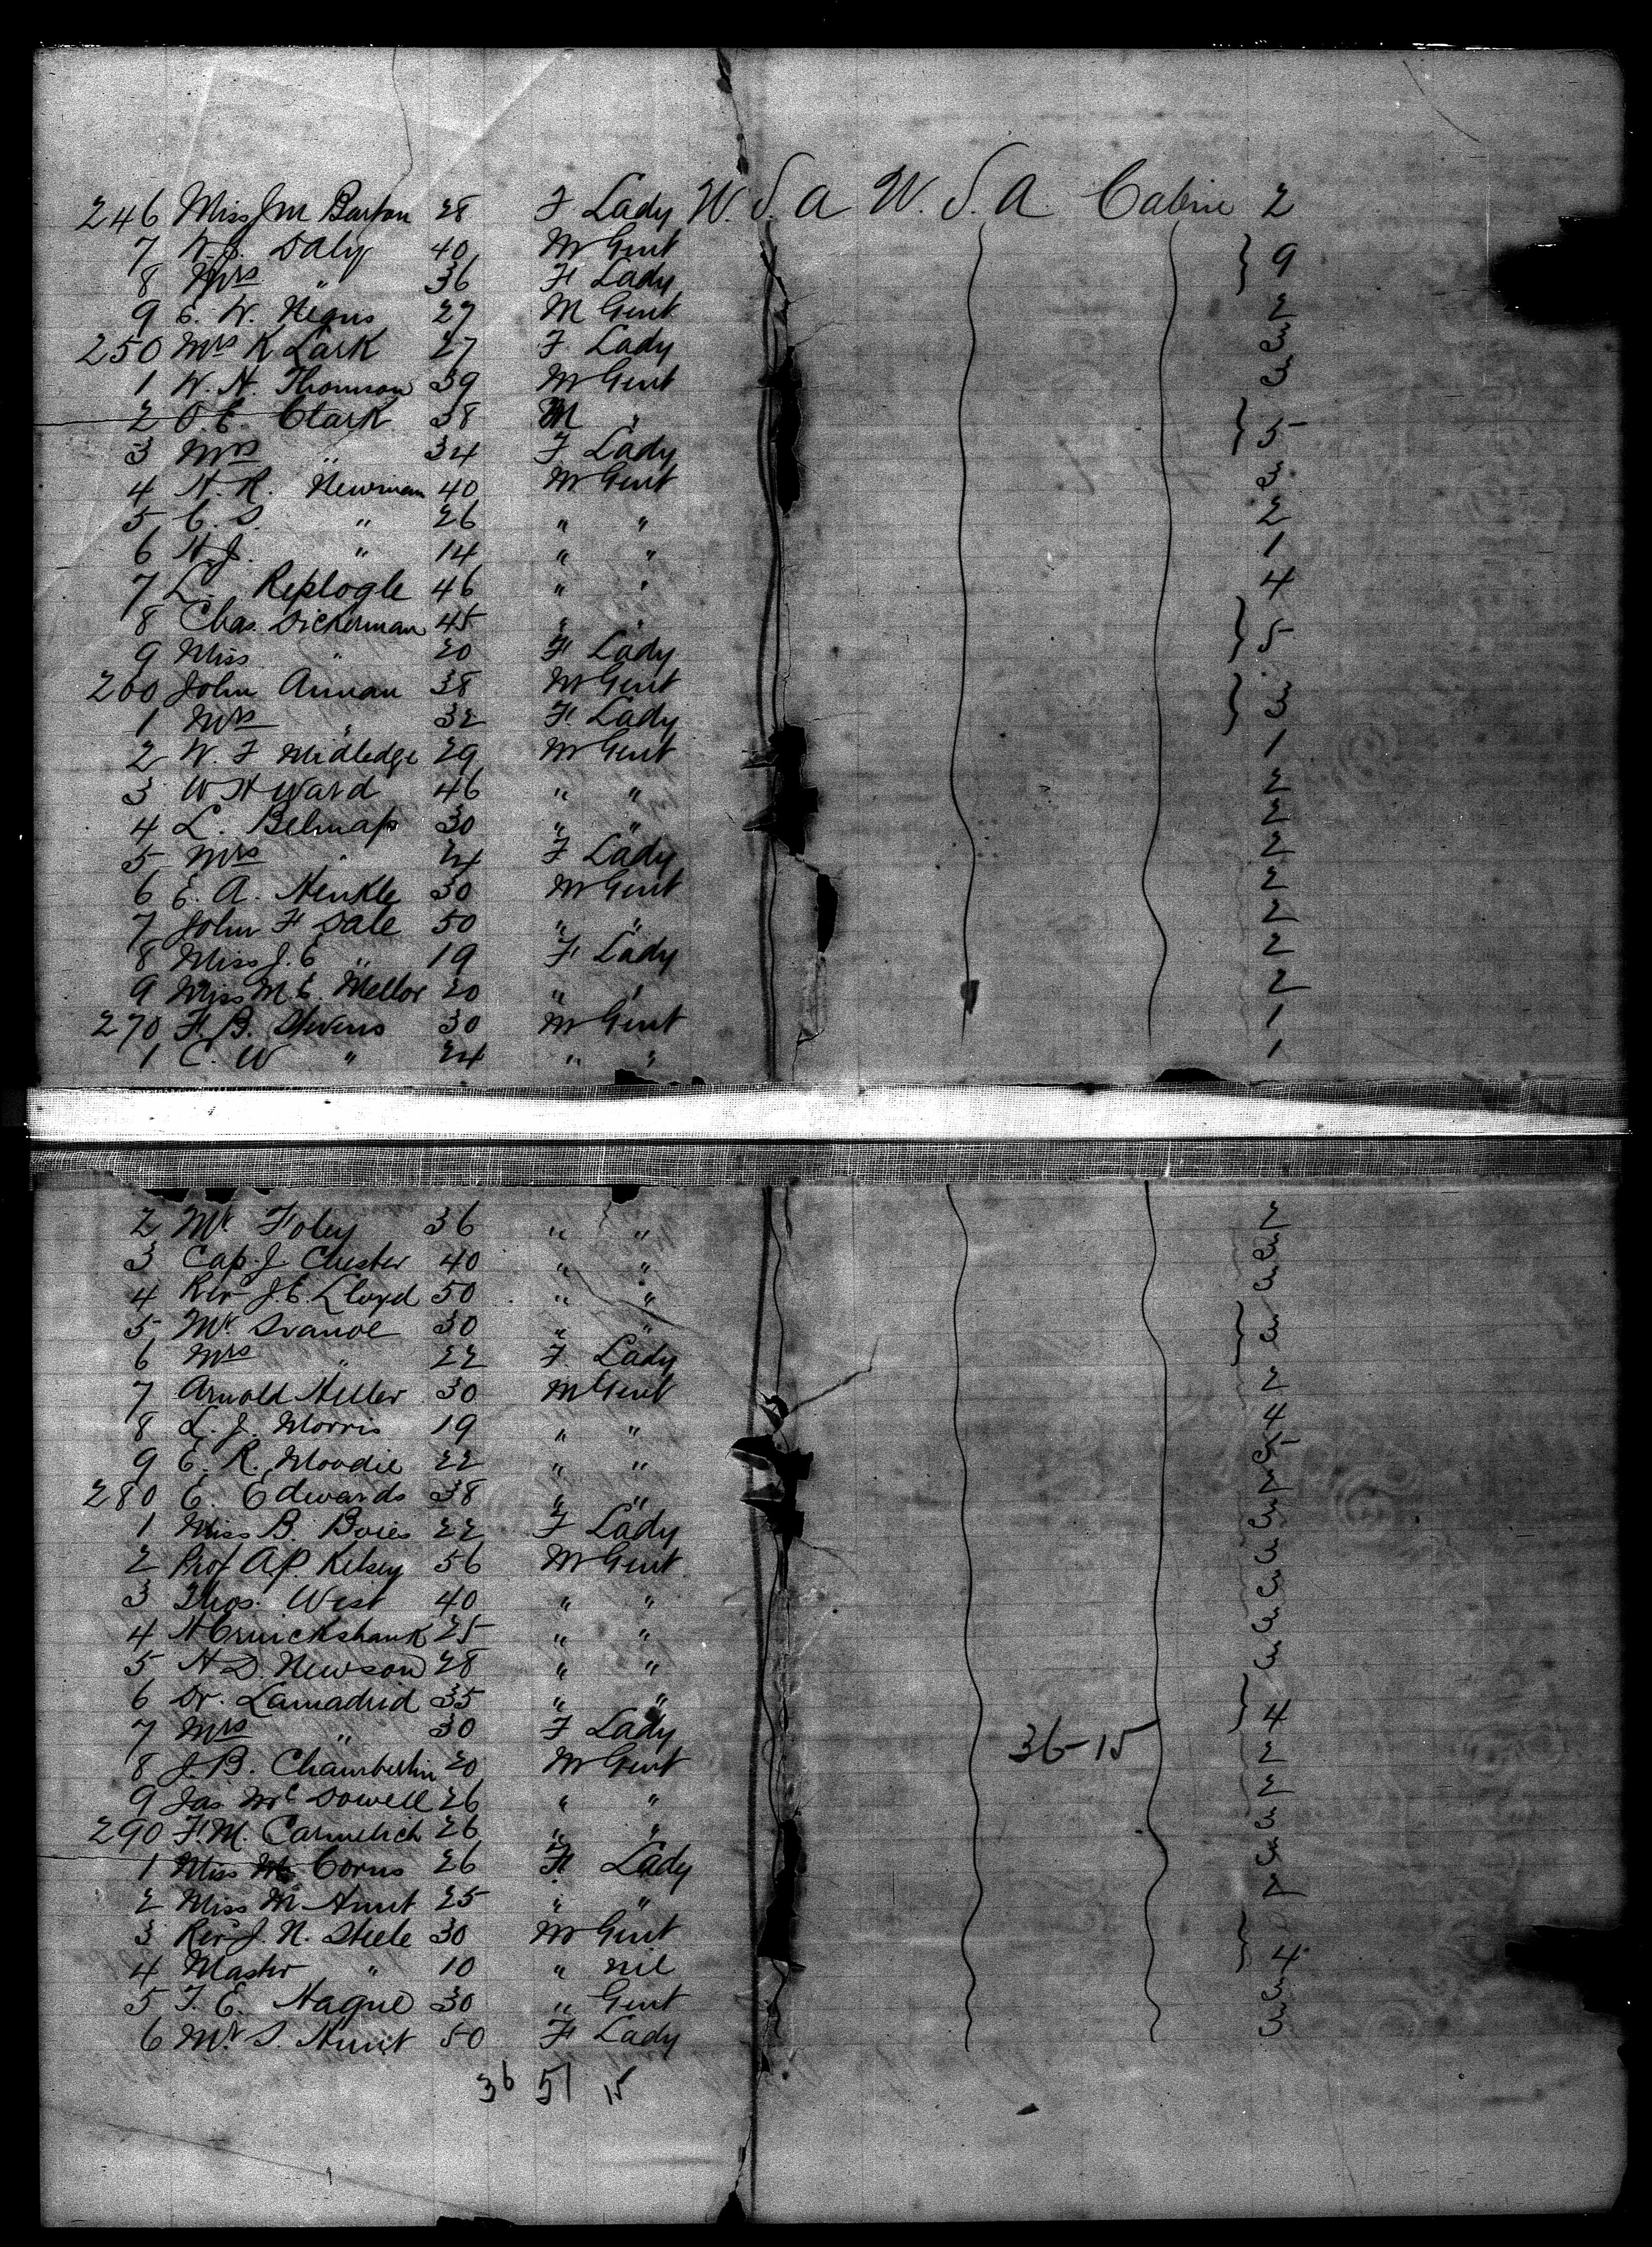 246 Miss J M Barton 28 F Lady U. S. A U. S. A. Cabin 2
7 W. J. Daly 40 M Gent } 9
8 Mrs " 36 F Lady
9 E. W. Negus 27 M Gent 2
250 Mrs K Lark 27 F Lady 3
1 W. H. Thomson 39 M Gent 3
2 O. E. Clark 38 M " } 5
3 Mrs " 34 F Lady
4 H. R. Newman 40 M Gent 3
5 C. S. " 26 " " 2
6 H. J. " 14 " " 1
7 L. Replogle 46 " " 4
8 Chas. Dickerman 45 " " } 5
9 Miss " 20 F Lady
260 John Annan 38 M Gent } 3
1 Mrs " 32 F Lady
2 W. F Midledge 29 M Gent 1
3 W H Ward 46 " " 2
4 L. Belnap 30 " " 2
5 Mrs " 24 F Lady 2
6 E. A. Henkle 30 M Gent 2
7 John F Dale 50 " " 2
8 Miss J. E " 19 F Lady 2
9 Miss M. E. Mellor 20 " " 2
270 F. B. Stevens 30 M Gent 1
1 C. W " 24 " " 1
2 Mr. Foley 36 " " 2
3 Cap. J. Chester 40 " " 3
4 Rev J. E. Lloyd 50 " " 3
5 Mr. 30 " " } 3
6 Mrs " 22 F Lady
7 Arnold Heller 30 M Gent 2
8 L. J. Morris 19 " " 4
9 E. R. Moodie 22 " " 5
280 E. Edwards 38 " " 2
1 Miss B. Boies 22 F Lady 3
2 Prof A. P. Kelsey 56 M Gent 3
3 Thos. West 40 " " 3
4 H Cruickshank 25 " " 3
5 H. D. Newson 28 " " 3
6 Dr. Lamadrid 35 " " } 4
7 Mrs " 30 F Lady 36-15
8 J. B. Chamberlin 20 M Gent 2
9 Jas McDowell 26 " " 2
290 F. M. Carmelich 26 " " 3
1 Miss Corns 26 F Lady 3
2 Miss M Hunt 25 " " 2
3 Rev J. N. Steele 30 M Gent } 4
4 Master " 10 " nil
5 T. E. Hague 30 " Gent 3
6 Mrs S. Hunt 50 F Lady 3
36 51 15